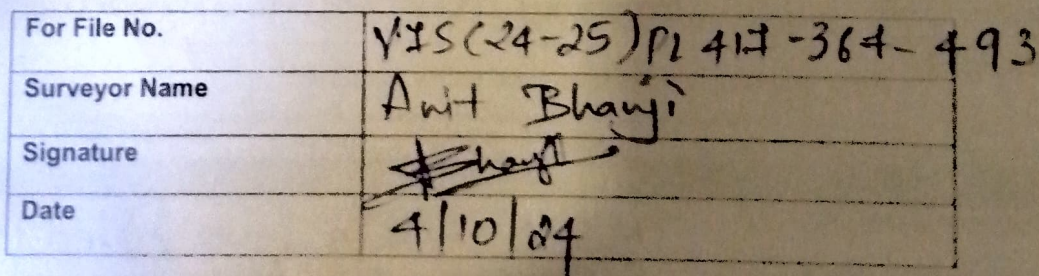 For File No. VIS(24-25)PL 417-364-493
Surveyor Name Anit Bhanji
Signature Bhanji
Date 4/10/24